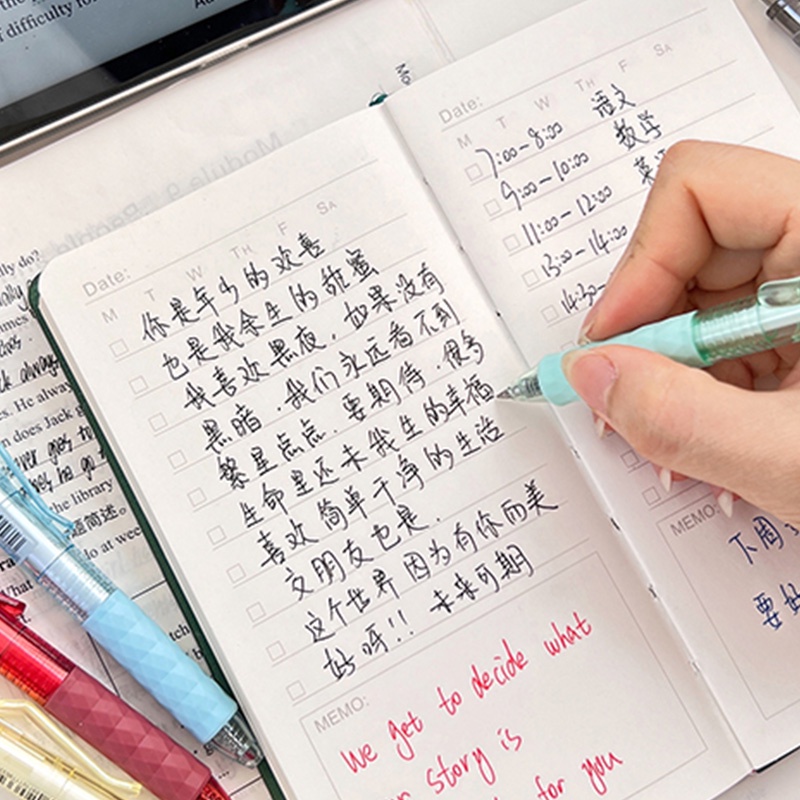 difficulty fo
Date:
M T W TH F SA
你是年少的欢喜
也是我余生的甜蜜
我喜欢黑夜，如果没有
黑暗，我们永远看不到
繁星点点。要期待，很多
生命里还未发生的幸福
喜欢简单干净的生活
交朋友也是.
这个世界因为有你而美
好呀!! 未来可期
MEMO:
we get to decide what
story is
for you
Date:
M T W TH F SA
7:00-8:00 语文
9:00-10:00 数学
11:00-12:00
13:00-14:00
14:30-
MEMO:
下周
要好
ly do?
always
es. He alway
n does Jack g
the library
题简述。
do at wee
What